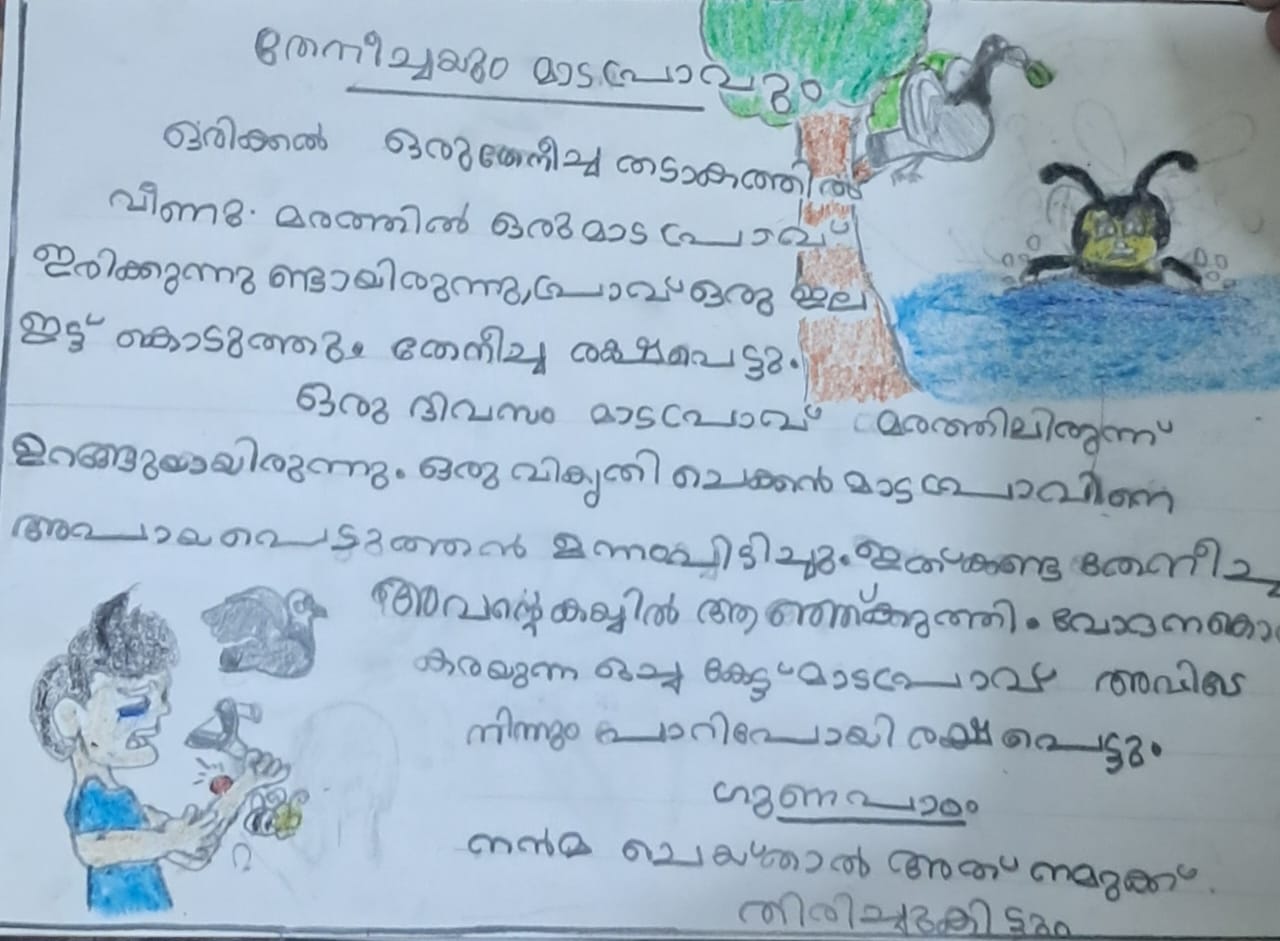 തേനീച്ചയും മാടപ്രാവും
ഒരിക്കൽ ഒരു തേനീച്ച തടാകത്തിൽ
വീണു. മരത്തിൽ ഒരു മാട പ്രാവ്
ഇരിക്കുന്നു ണ്ടായിരുന്നു, പ്രാവ് ഒരു ഇല
ഇട്ട് കൊടുത്തു. തേനീച്ച രക്ഷപെട്ടു.
ഒരു ദിവസം മാടപ്രാവ് മരത്തിലിരുന്ന്
ഉറങ്ങുയായിരുന്നു. ഒരു വികൃതി ചെക്കൻ മാടപ്രാവിനെ
അപായപെട്ടുത്തൻ ഉന്നംപിടിച്ചു. ഇത് കണ്ട തേനീച്ച
അവന്റെ കയ്യിൽ ആഞ്ഞ്കുത്തി. വേദനകൊ
കരയുന്ന ഒച്ച കേട്ട് മാടപ്രാവ് അവിടെ
നിന്നും പാറിപോയി രക്ഷപെട്ടു.
ഗുണപാഠം
നൻമ ചെയ്താൽ അത് നമുക്ക്
തിരിച്ചുകിട്ടും